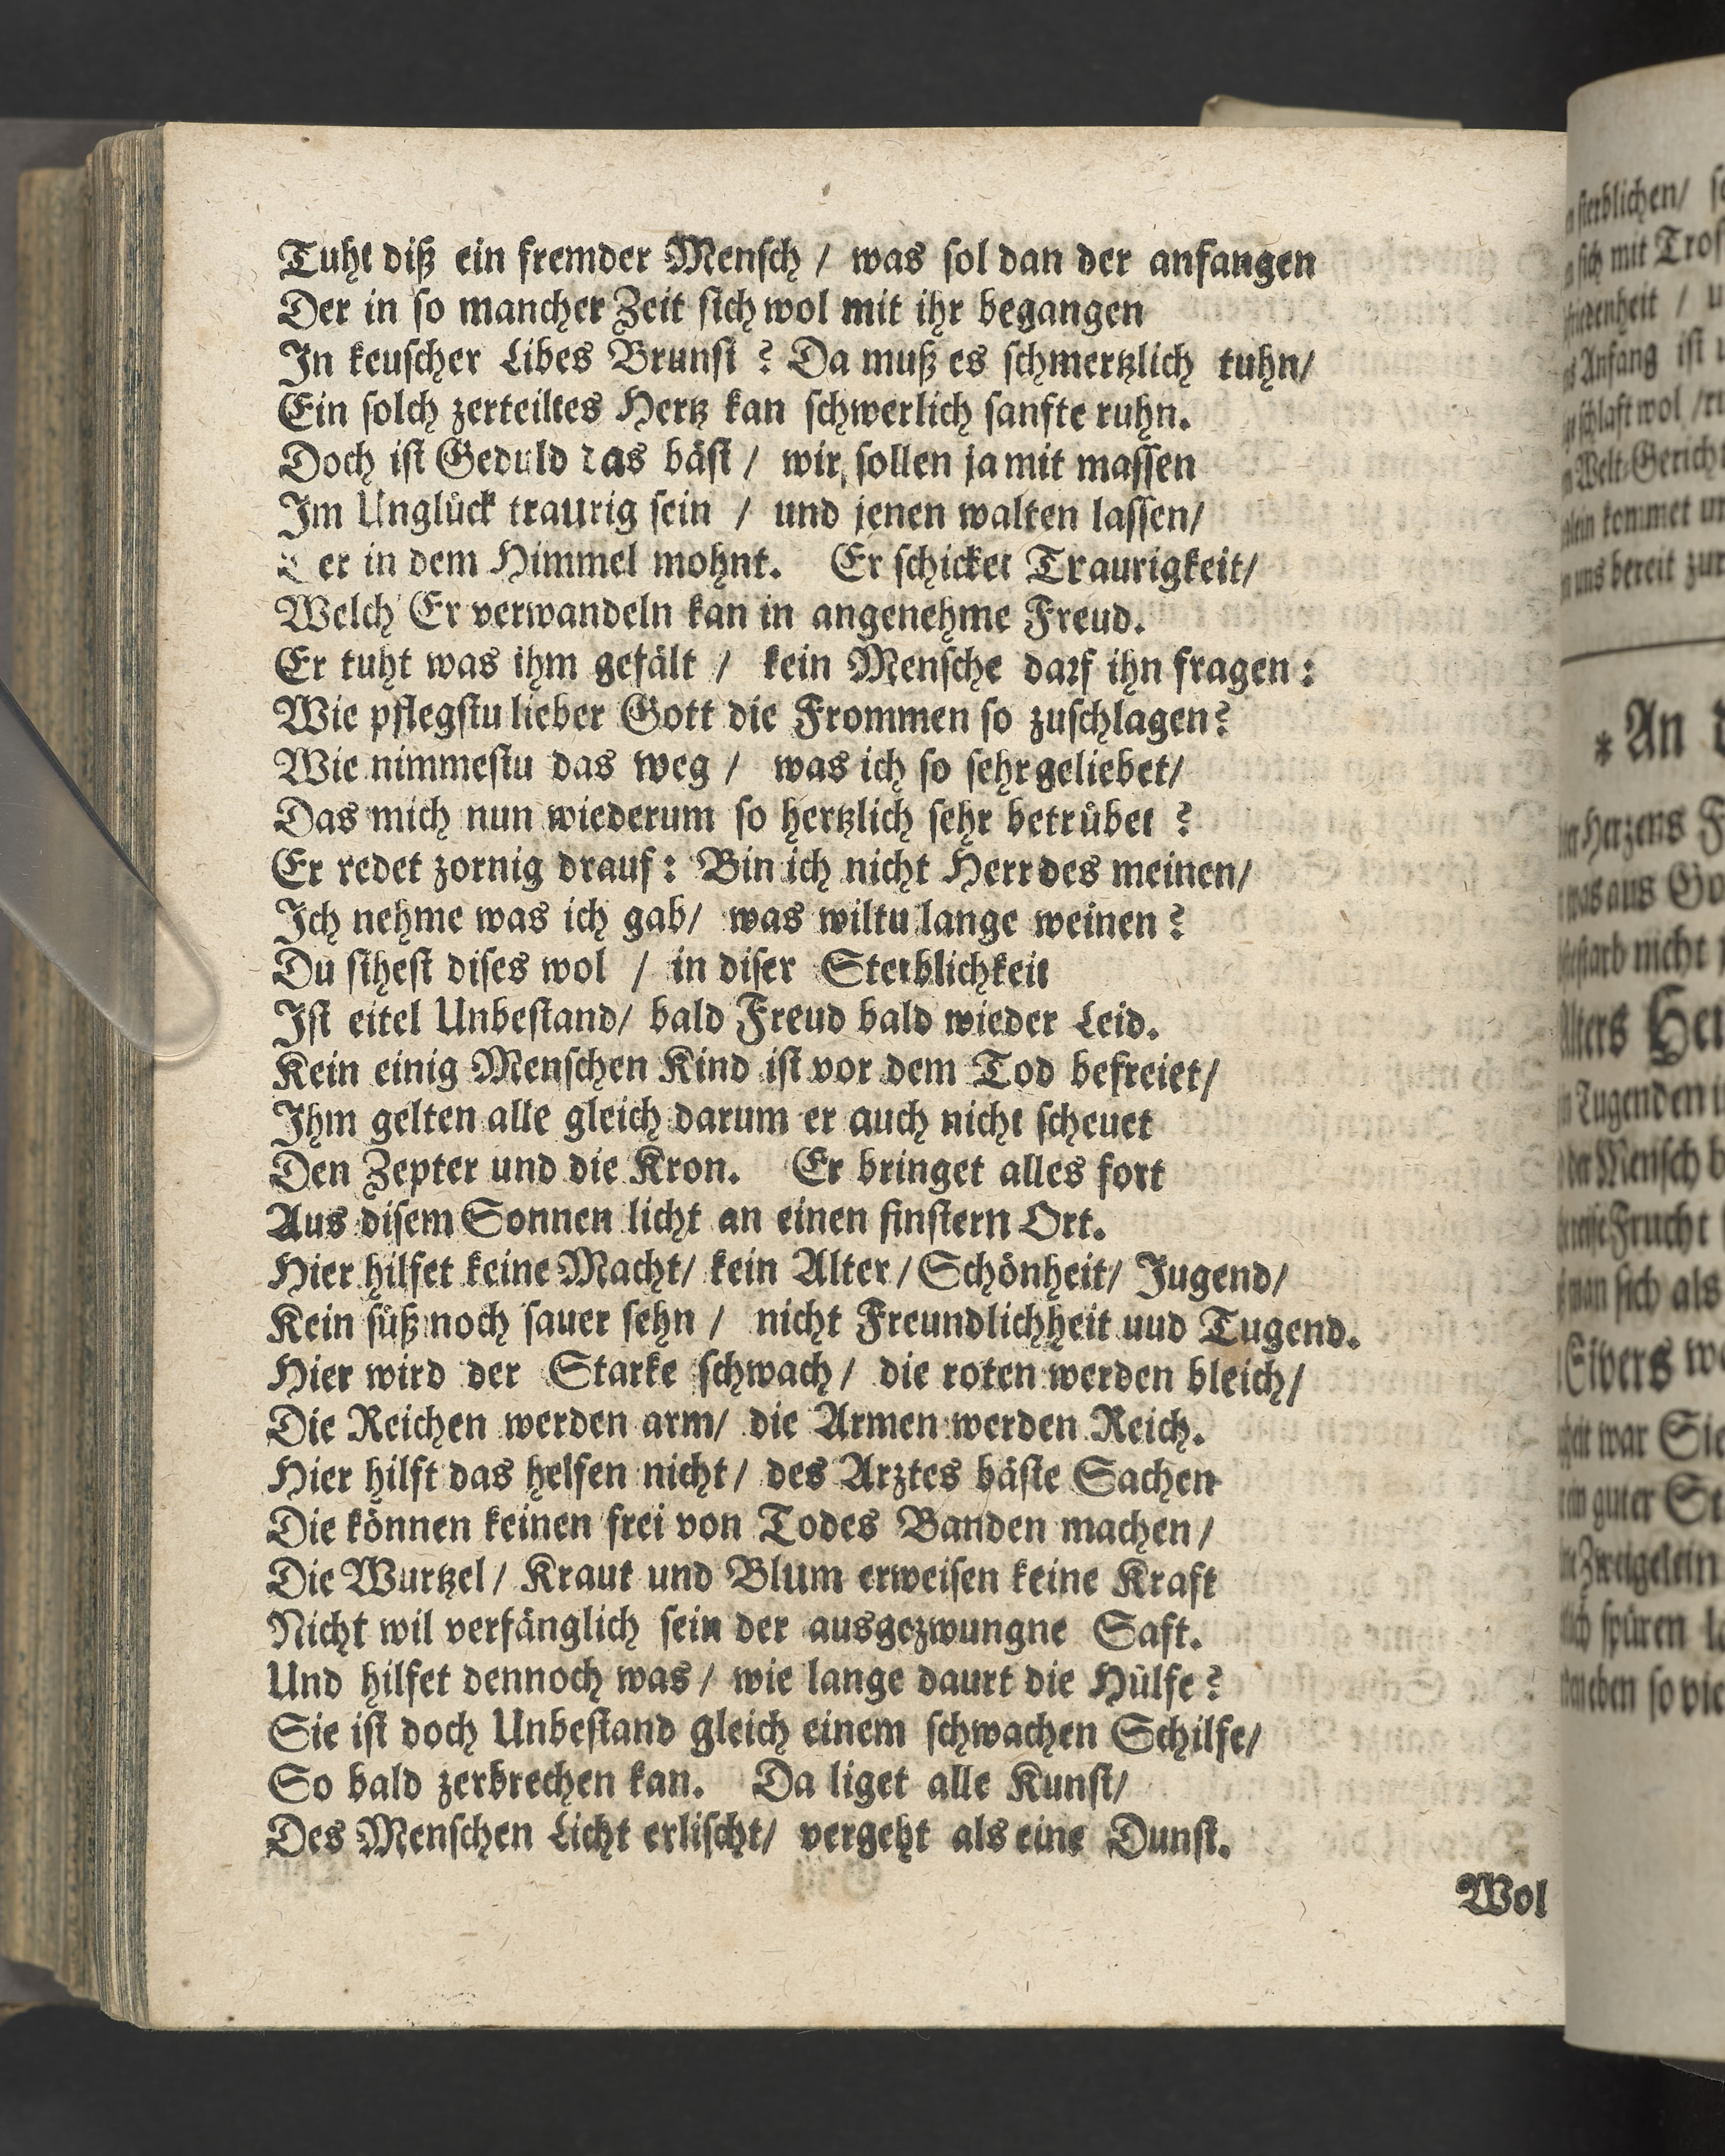 Tuht diß ein fremder Mensch / was sol dan der anfangen
Der in so mancher Zeit sich wol mit ihr begangen
In keuscher Libes Brunst ? Da muß es schmertzlich tuhn/
Ein solch zerteiltes Hertz kan schwerlich sanfte ruhn.
Doch ist Geduld das bäst / wir sollen ja mit massen
Im Unglück traurig sein / und jenen walten lassen/
Der in dem Himmel mohnt. Er schicket Traurigkeit/
Welch Er verwandeln kan in angenehme Freud.
Er tuht was ihm gefält / kein Mensche darf ihn fragen :
Wie pflegstu lieber Gott die Frommen so zuschlagen?
Wie nimmestu das weg / was ich so sehr geliebet/
Das mich nun wiederum so hertzlich sehr betrübet ?
Er redet zornig drauf : Bin ich nicht Herr des meinen/
Ich nehme was ich gab/ was wiltu lange weinen ?
Du sihest dises wol / in diser Sterblichkeit
Ist eitel Unbestand/ bald Freud bald wieder Leid.
Kein einig Menschen Kind ist vor dem Tod befreiet/
Ihm gelten alle gleich darum er auch nicht scheuet
Den Zepter und die Kron. Er bringet alles fort
Aus disem Sonnen licht an einen finstern Ort.
Hier hilfet keine Macht/ kein Alter / Schönheit/ Jugend/
Kein süß noch sauer sehn / nicht Freundlichheit uud Tugend.
Hier wird der Starke schwach / die roten werden bleich/
Die Reichen werden arm/ die Armen werden Reich.
Hier hilft das helfen nicht / des Arztes bäste Sachen
Die können keinen frei von Todes Banden machen /
Die Wurtzel / Kraut und Blum erweisen keine Kraft
Nicht wil verfänglich sein der ausgezwungne Saft.
Und hilfet dennoch was / wie lange daurt die Hülfe ?
Sie ist doch Unbestand gleich einem schwachen Schilfe/
So bald zerbrechen kan. Da liget alle Kunst/
Des Menschen Licht erlischt/ vergeht als eine Dunst.
Wol
sterblichen/
sich mit
/
Anfang ist
schlaft wol
kommet
uns bereit zur
* An
Herzens
aus
nicht
Alters
Tugenden
der Mensch
Frucht
man sich als
Sivers
war Sie
guter
Zweigelein
spüren
eben so